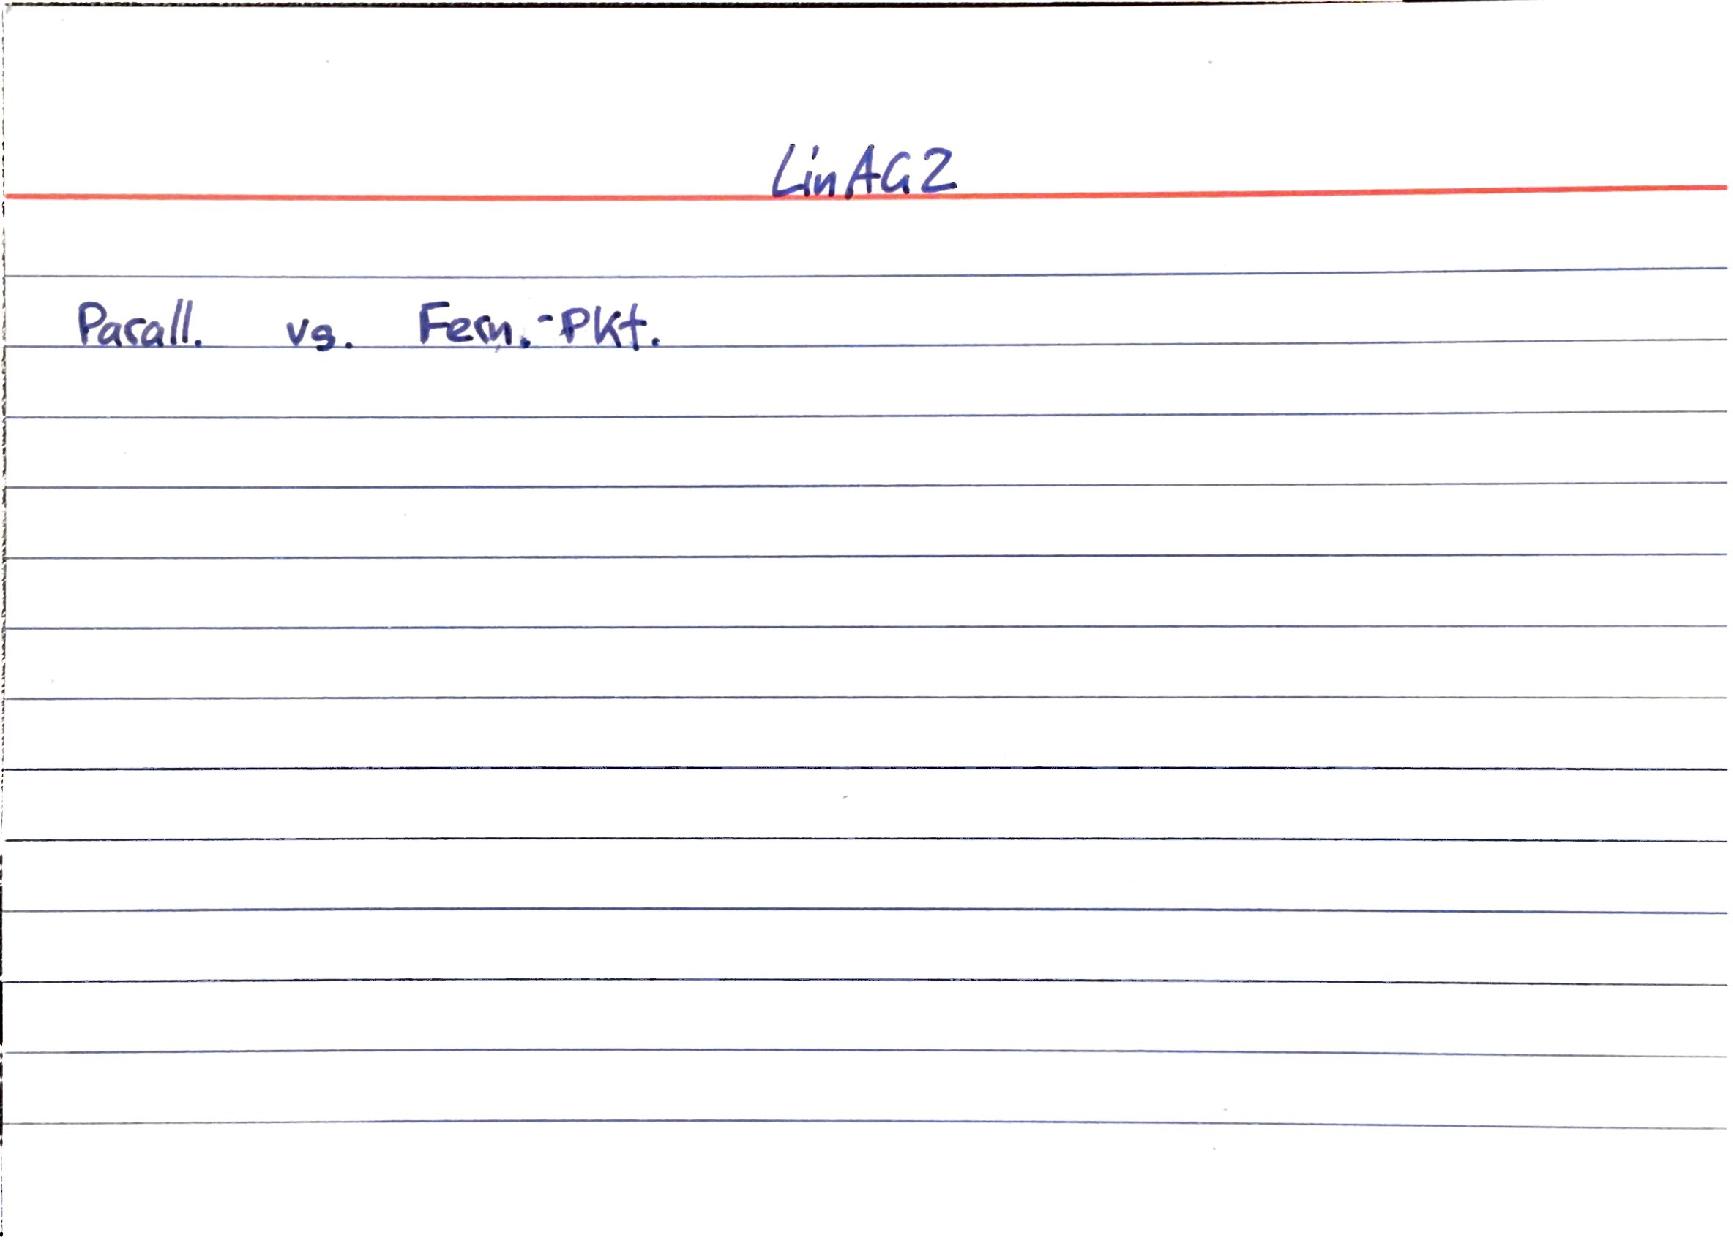 LinAG2
Parall. vs. Fern.-Pkt.